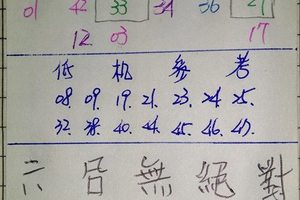 01 42 33 34 36 21
12. 03 17
低 机 参 考
08. 09. 19. 21. 23. 24. 25.
32. 38. 40. 44. 45. 46. 47.
六 合 無 絕 對